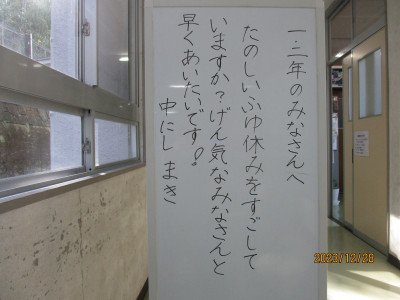 一・二年のみなさんへ
たのしいふゆ休みをすごして
いますか？げん気なみなさんと
早くあいたいです！。
中にし まき
2023/12/28